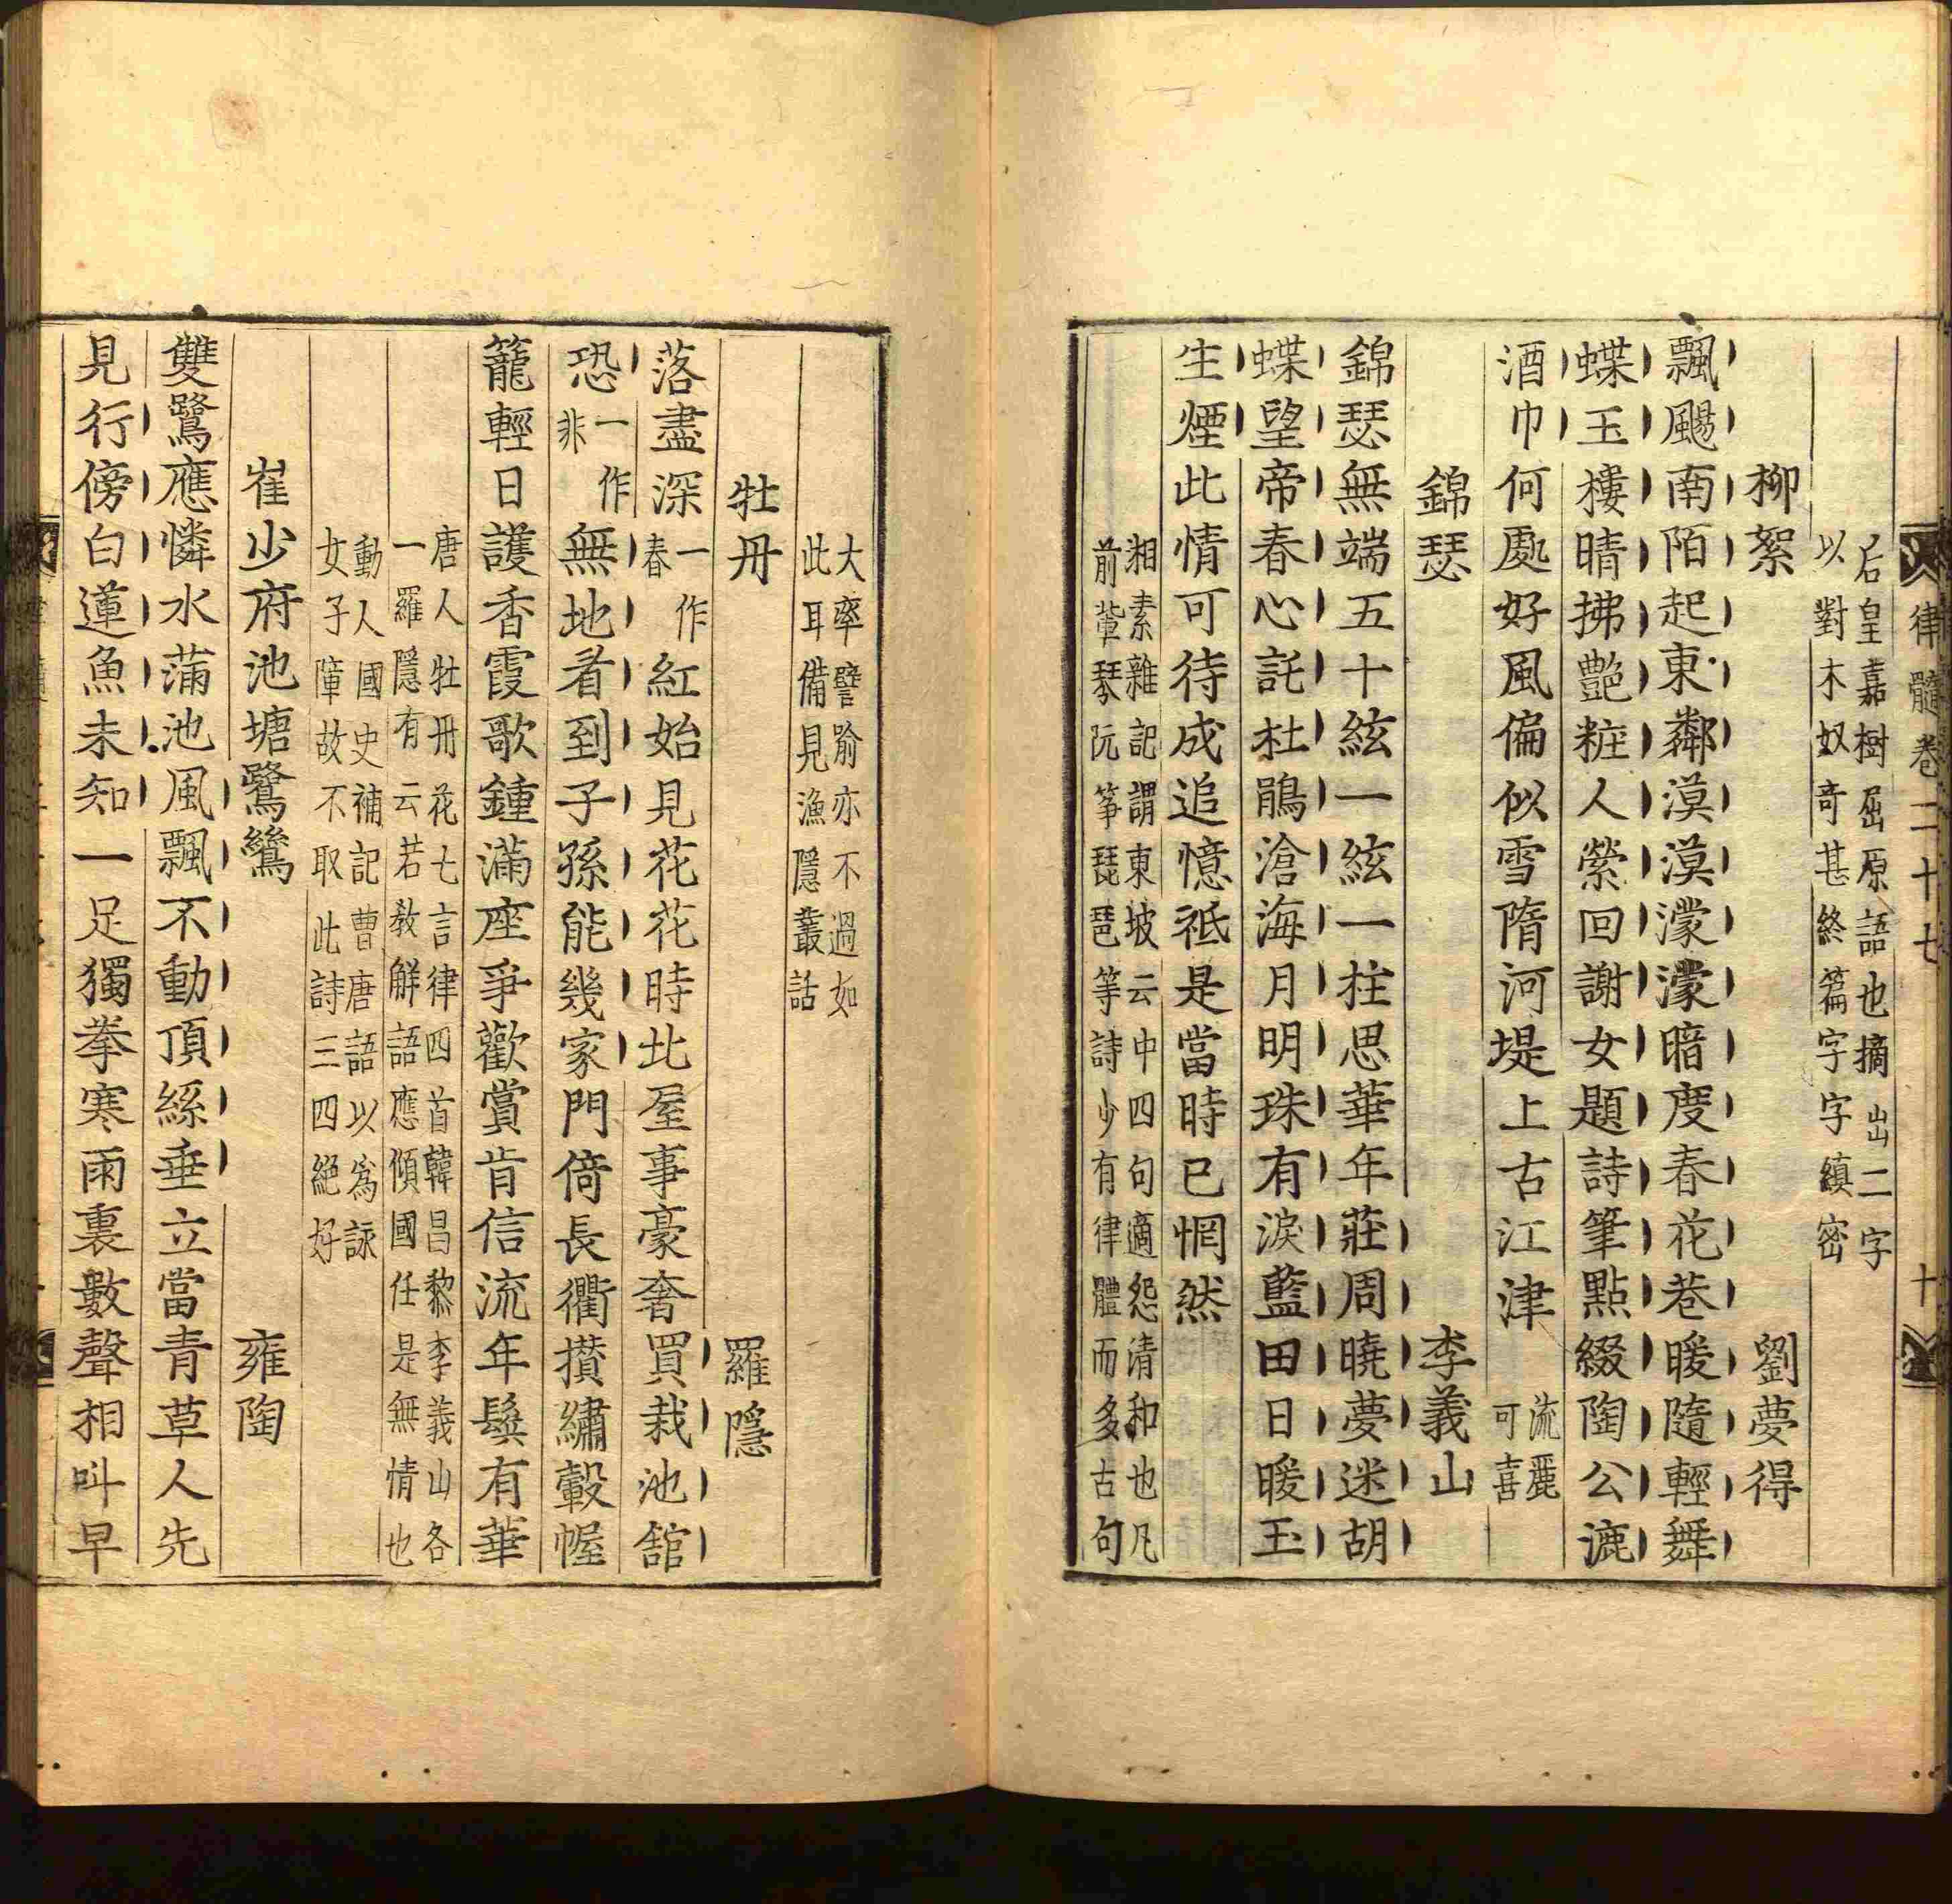 律髓卷二十七 十
后皇嘉樹屈原語也摘出二字
以對木奴奇甚終篇字字縝密
柳絮 劉夢得
飄颺南陌起東鄰漠漠濛濛暗度春花巷暖隨輕舞
蝶玉樓晴拂艷粧人縈回謝女題詩筆點綴陶公漉
酒巾何處好風偏似雪隋河堤上古江津 流麗可喜
錦瑟 李義山
錦瑟無端五十絃一絃一柱思華年莊周曉夢迷胡
蝶望帝春心託杜鵑滄海月明珠有淚藍田日暖玉
生煙此情可待成追憶祗是當時已惘然
緗素雜記謂東坡云中四句適怨清和也凡
前輩琴阮筝琵琶等詩少有律體而多古句
大率譬喻亦不過如
此耳備見漁隱叢話
牡丹 羅隱
落盡深一作春紅始見花花時比屋事豪奢買栽池舘
恐一作非無地看到子孫能幾家門倚長衢攅繡轂幄
籠輕日護香霞歌鍾滿座爭歡賞肯信流年鬂有華
唐人牡丹花七言律四首韓昌黎李義山各
一羅隱有云若教解語應傾國任是無情也
動人國史補記曹唐語以為詠
女子障故不取此詩三四絕好
崔少府池塘鷺鷥 雍陶
雙鷺應憐水滿池風飄不動頂絲垂立當青草人先
見行傍白蓮魚未知一足獨拳寒雨裏數聲相呌早